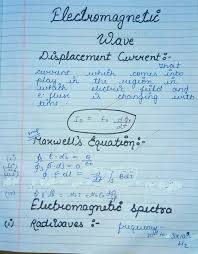 Electromagnetic
Wave
Displacement Current:
That
current which comes into
play in the region in
which electric field and
e flux is changing with
time
I_D = ε₀ dφ_E/dt
Maxwell's Equation:-
(i) ∮ E·ds = Q/ε₀
(ii) ∮ B·ds = 0
(iii) ∮ E·dl =
Electromagnetic spectra
(i) Radiowaves : frequency -
Hz